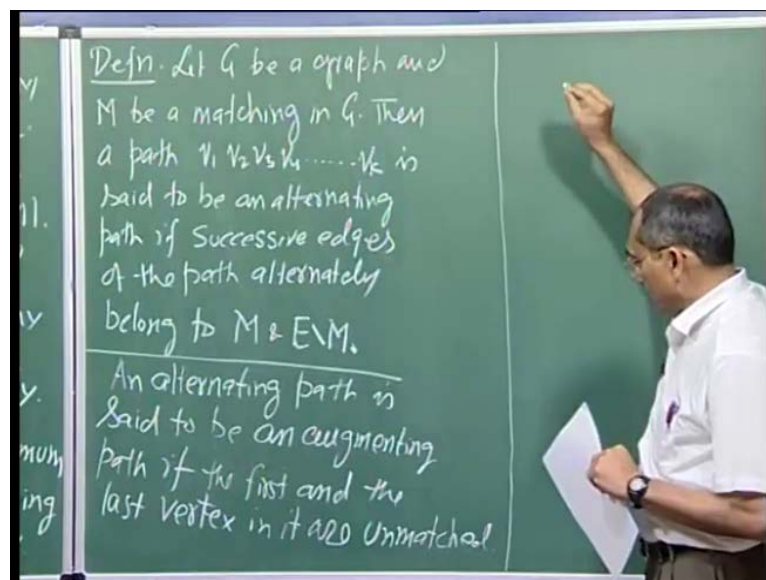 Defn. Let G be a graph and
M be a matching in G. Then
a path v1 v2 v3 v4 ...... vk is
said to be an alternating
path if successive edges
of the path alternately
belong to M & E\M.
An alternating path is
said to be an augmenting
path if the first and the
last vertex in it are unmatched.
y.
mum
ing